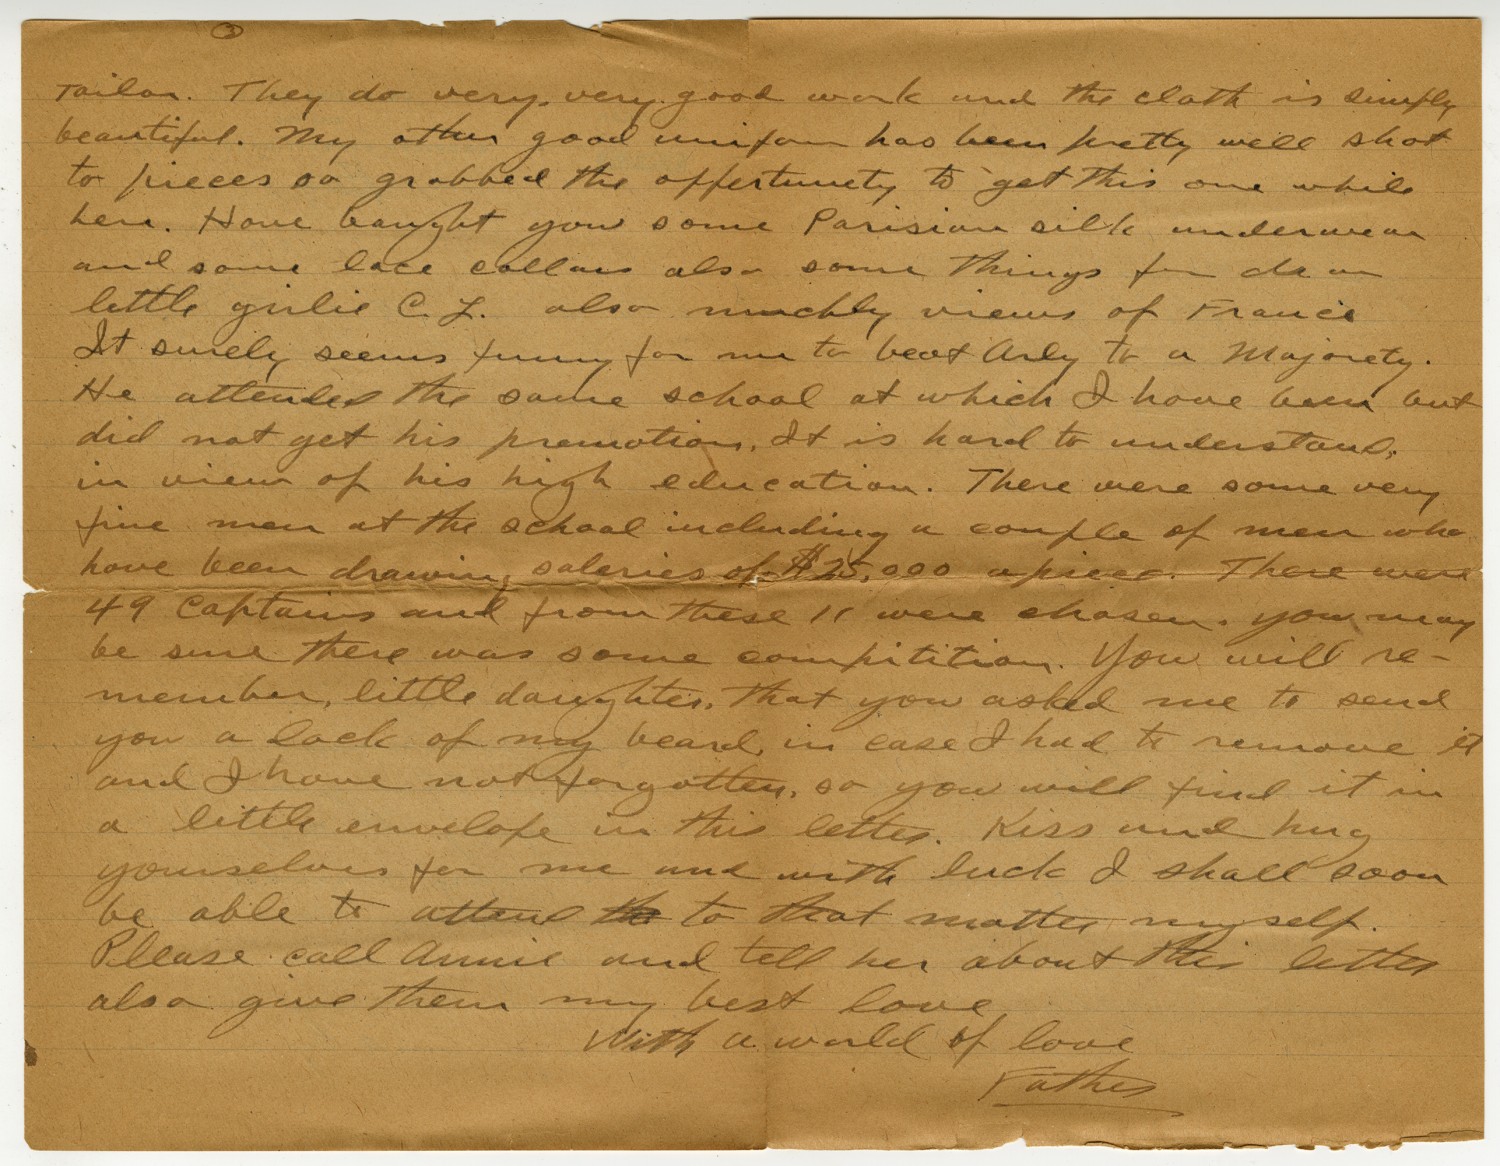 3
Tailor. They do very, very good work and the cloth is simply
beautiful. My other good uniform has been pretty well shot
to pieces so grabbed the opportunity to get this one while
here. Have bought you some Parisian silk underwear
and some lace collars also some things for dear
little girlie C. L. also muchly views of France
It surely seems funny for me to beat Arly to a Majority.
He attended the same school at which I have been but
did not get his promotion. It is hard to understand,
in view of his high education. There were some very
fine men at the school including a couple of men who
have been drawing salaries of $25,000 apiece. There were
49 Captains and from these 11 were chosen. you may
be sure there was some compitition. You will re-
member, little daughter, that you asked me to send
you a lock of my beard, in case I had to remove it
and I have not forgotten, so you will find it in
a little envelope in this letter. Kiss and hug
yourselves for me and with luck I shall soon
be able to attend to that matter myself.
Please call Annie and tell her about this letter
also give them my best love
With a world of love
Father